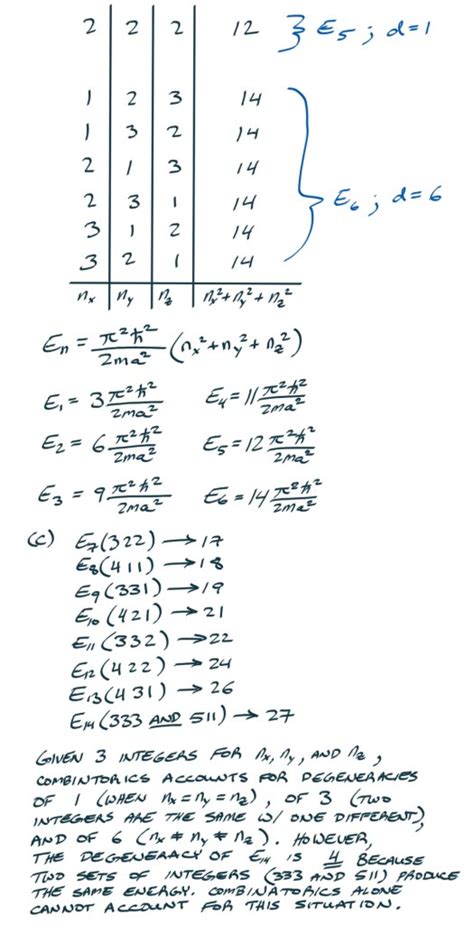 2 2 2 12 } E₅ ; d=1
1 2 3 14
1 3 2 14
2 1 3 14
2 3 1 14 } E₆ ; d=6
3 1 2 14
3 2 1 14
nₓ n_y n_z nₓ²+n_y²+n_z²
Eₙ = π²ħ²/2ma² (nₓ²+n_y²+n_z²)
E₁ = 3 π²ħ²/2ma² E₄ = 11 π²ħ²/2ma²
E₂ = 6 π²ħ²/2ma² E₅ = 12 π²ħ²/2ma²
E₃ = 9 π²ħ²/2ma² E₆ = 14 π²ħ²/2ma²
(c) E₇(322) → 17
E₈(411) → 18
E₉(331) → 19
E₁₀(421) → 21
E₁₁(332) → 22
E₁₂(422) → 24
E₁₃(431) → 26
E₁₄(333 AND 511) → 27
GIVEN 3 INTEGERS FOR nₓ, n_y, AND n_z,
COMBINTORICS ACCOUNTS FOR DEGENERACIES
OF 1 (WHEN nₓ=n_y=n_z), OF 3 (TWO
INTEGERS ARE THE SAME W/ ONE DIFFERENT),
AND OF 6 (nₓ≠n_y≠n_z). HOWEVER,
THE DEGENERACY OF E₁₄ IS 4 BECAUSE
TWO SETS OF INTEGERS (333 AND 511) PRODUCE
THE SAME ENERGY. COMBINATORICS ALONE
CANNOT ACCOUNT FOR THIS SITUATION.